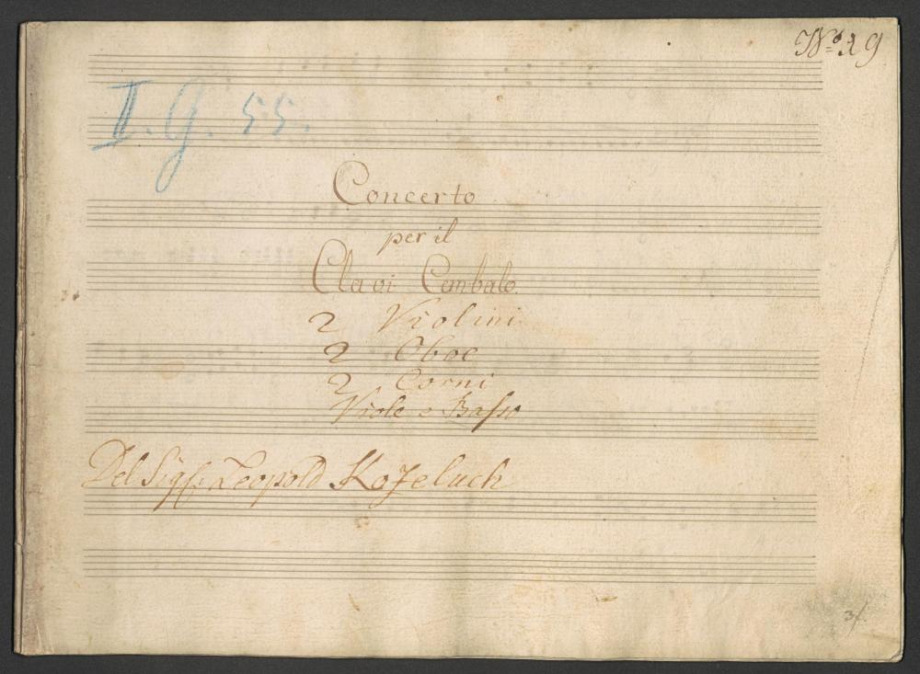 No. 19
II. G. 55.
Concerto
per il
Clavi Cembalo
2 Violini
2 Oboe
2 Corni
Viole e Basso
Del Sigr. Leopold Kozeluch